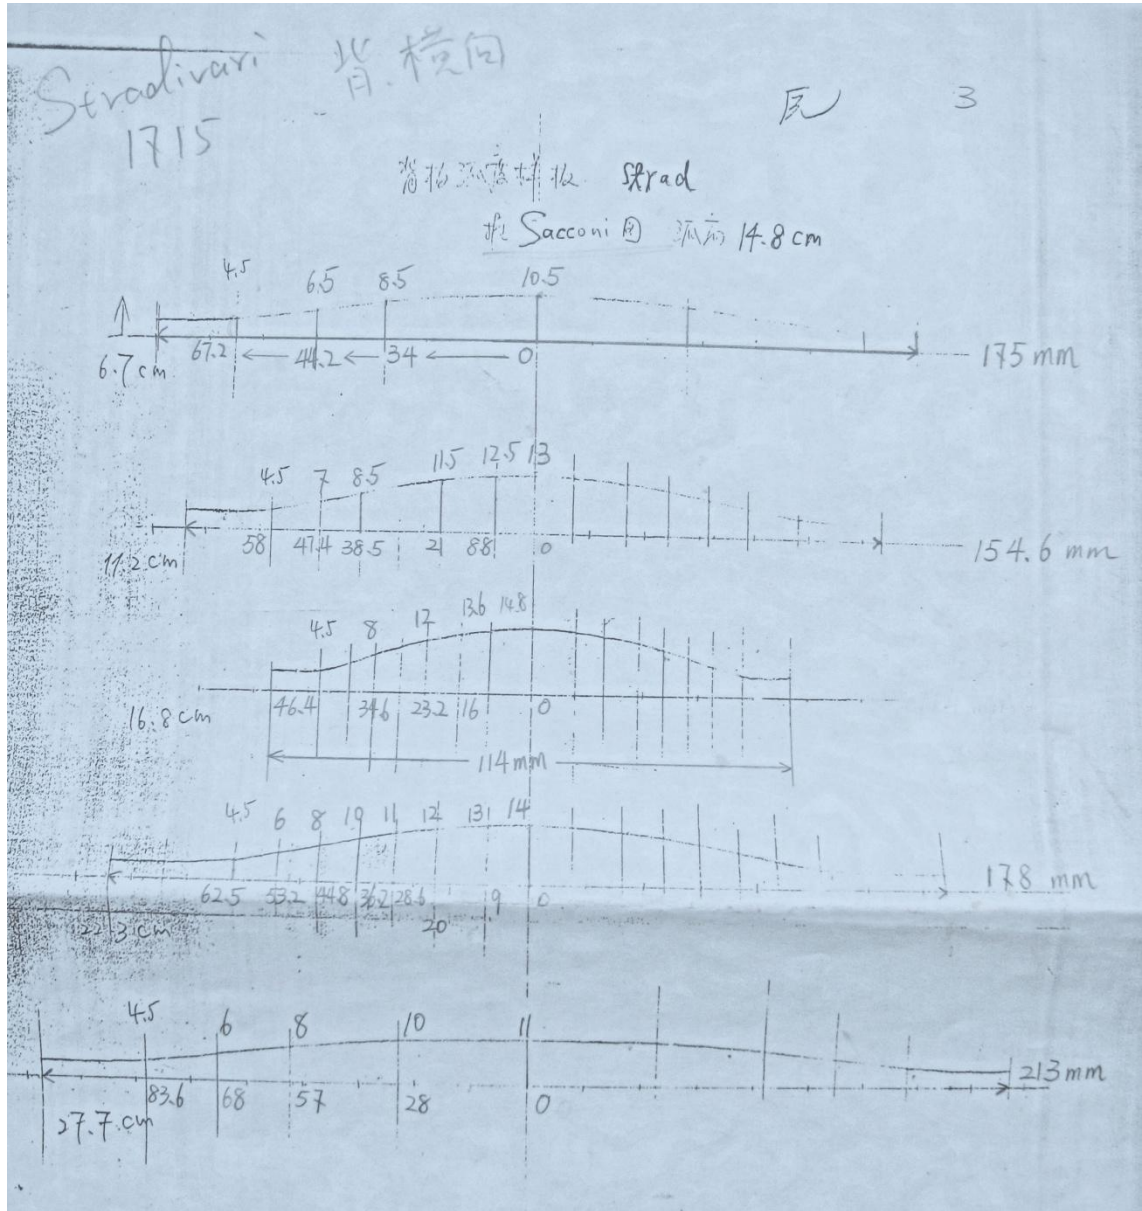 Stradivari 背.横向
1715
瓦 3
背板弧度样板 Strad
按 Sacconi 图 弧高 14.8 cm
4.5 6.5 8.5 10.5
6.7 cm 67.2 ← 44.2 ← 34 ← 0 175 mm
4.5 7 8.5 11.5 12.5 13
11.2 cm 58 47.4 38.5 21 8.8 0 154.6 mm
4.5 8 12 13.6 14.8
16.8 cm 46.4 34.6 23.2 16 0
114 mm
4.5 6 8 10 11 12 13 14
62.5 53.2 44.8 36.2 28.6 20 9 0 178 mm
22.3 cm
4.5 6 8 10 11
83.6 68 57 28 0 213 mm
27.7 cm